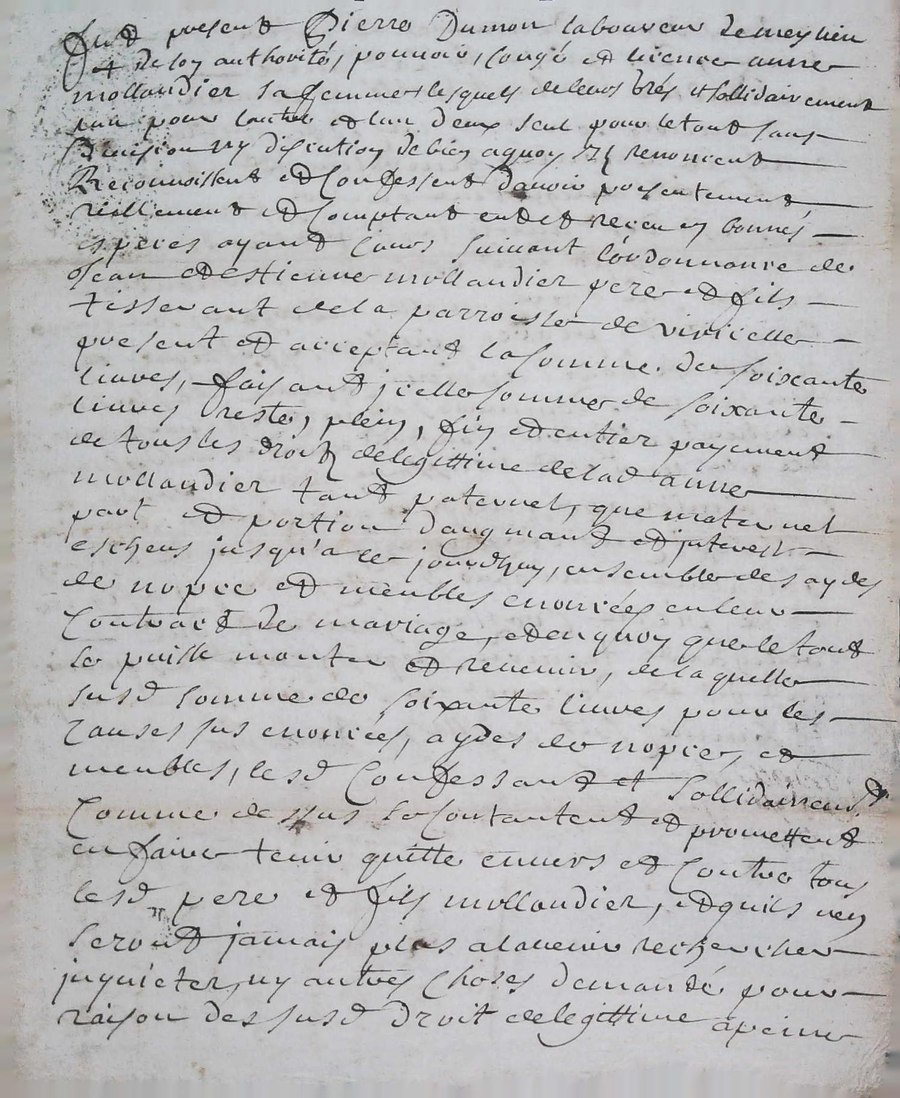 fut present Pierre Dumon laboureur de meynieu
& de soy authorité, pouvoir, congé et licence anne
mollandier sa femme lesquels de leurs grés et sollidairement
l'un pour l'autre et l'un deux seul pour le tout sans
division ny discution de bien a quoy ilz renoncent
Reconnoissent et Confessent d'avoir presentement
reellement et Comptant eu et et receu en bonnes
especes ayant Cours suivant l'ordonnance de
Jean et Estienne mollandier pere et fils
tisserant de la parroisse de viricelle
present et acceptant la somme de soixante
livres, faisant jcelle somme de soixante
livres reste, plein, fin et entier payement
de tous les droitz de legittime de lad anne
mollandier tant paternel, que maternel
part et portion daugmant et jnterest
escheus jusqu'a ce jourdhuy, ensemble des aydes
de nopce et meubles enoncées en leur
Contract de mariage, et en quoy que le tout
se puisse monter et revenir, de laquelle
susd somme de soixante livres pour les
causes sus enoncées, aydes de nopce, et
meubles, lesd Confessant et sollidairement
Comme dessus se Contantent et promettent
en faire tenir quitte envers et Contre tous
lesd pere et fils mollandier, et quils n'en
seront jamais plus a l'avenir rechercher
jnquieter, ny autres Choses demandé pour
raison des susd droit de legittime a peine